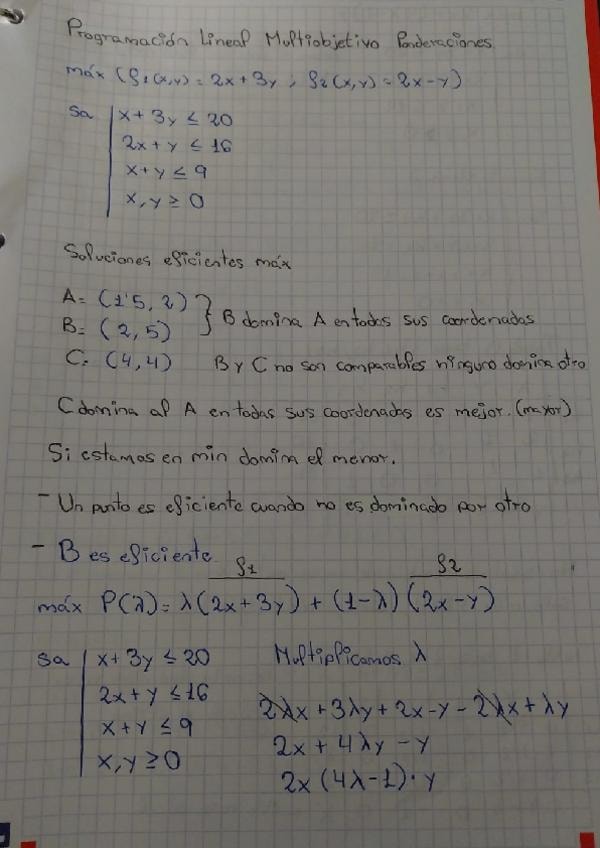 Programación Lineal Multiobjetivo Ponderaciones
máx (f1(x,y) = 2x+3y ; f2(x,y) = 2x-y)
sa x+3y ≤ 20
2x+y ≤ 16
x+y ≤ 9
x,y ≥ 0
Soluciones eficientes máx
A= (1'5, 2)
B= (2,5) } B domina A en todas sus coordenadas
C= (4,4) B y C no son comparables ninguno domina otro
C domina al A en todas sus coordenadas es mejor. (mayor)
Si estamos en min domina el menor.
- Un punto es eficiente cuando no es dominado por otro
- B es eficiente
f1 f2
máx P(λ) = λ(2x+3y) + (1-λ)(2x-y)
sa x+3y ≤ 20 Multiplicamos λ
2x+y ≤ 16
x+y ≤ 9 2λx+3λy+2x-y-2λx+λy
x,y ≥ 0 2x+4λy-y
2x(4λ-1)·y